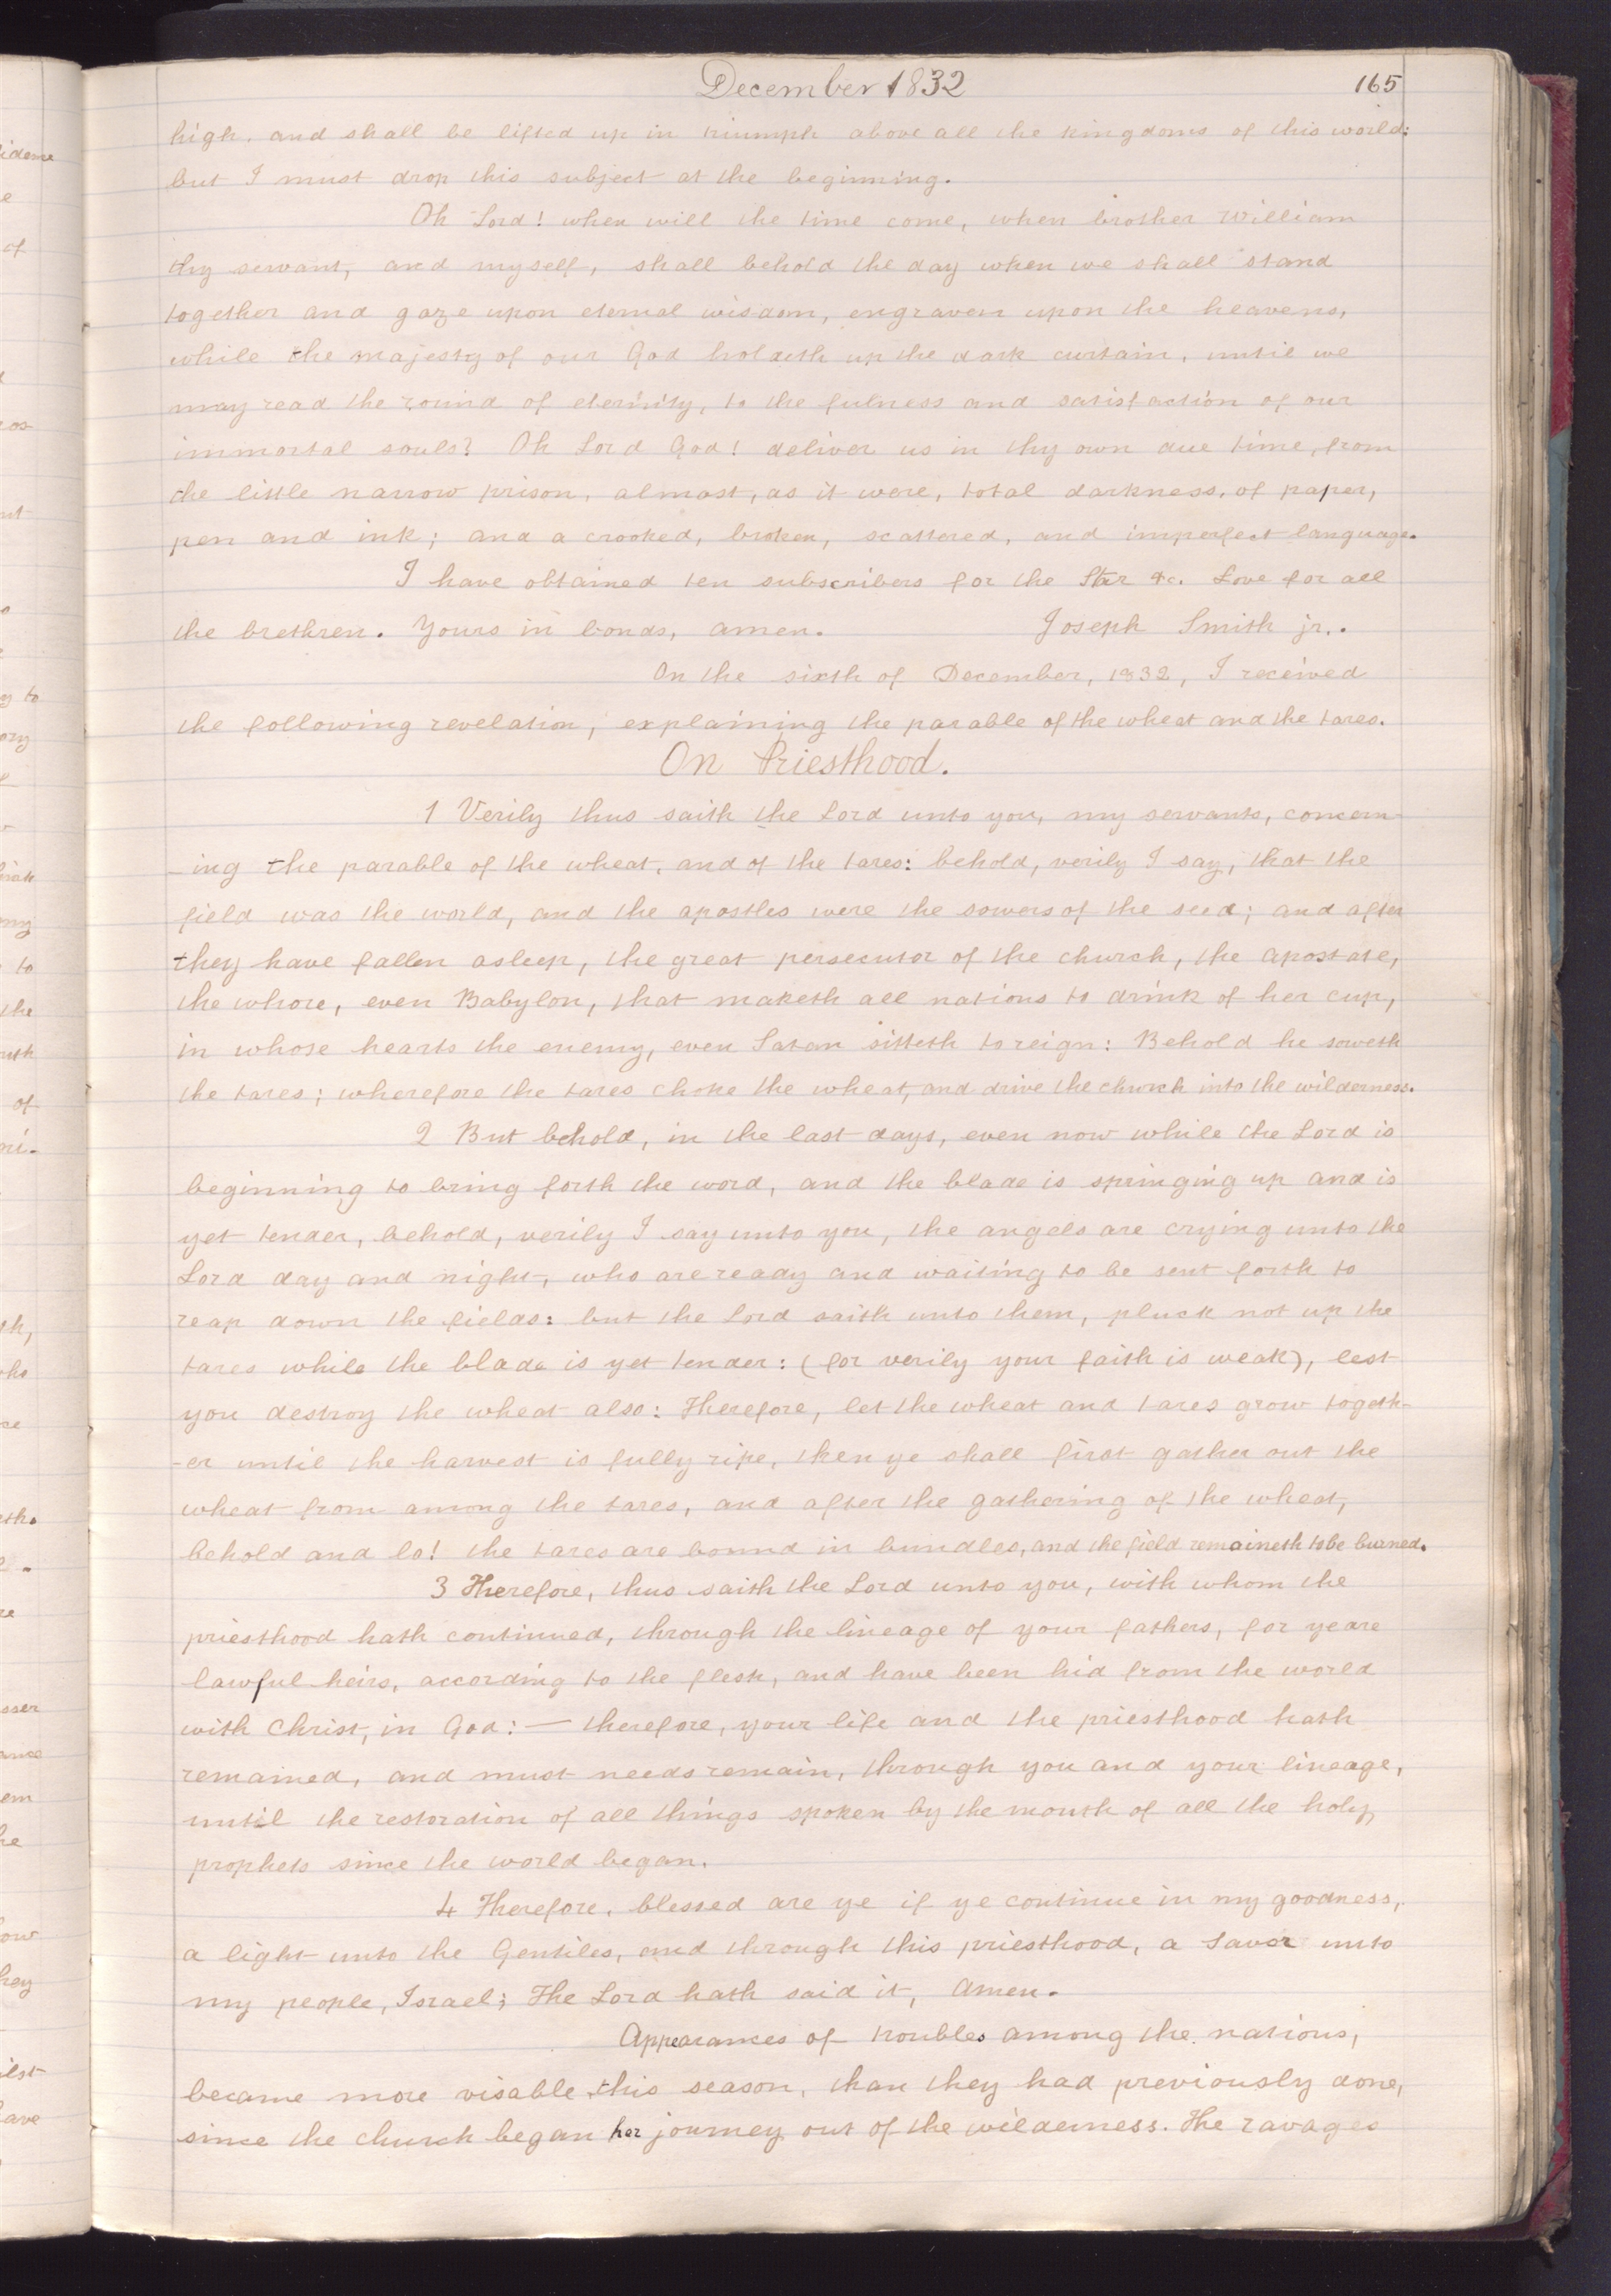 December 1832
165
high, and shall be lifted up in triumph above all the kingdoms of this world:
but I must drop this subject at the beginning.
Oh Lord! when will the time come, when brother William
thy servant, and myself, shall behold the day when we shall stand
together and gaze upon eternal wisdom, engraven upon the heavens,
while the majesty of our God holdeth up the dark curtain, until we
may read the round of eternity, to the fulness and satisfaction of our
immortal souls? Oh Lord God! deliver us in thy own due time, from
the little narrow prison, almost, as it were, total darkness, of paper,
pen and ink; and a crooked, broken, scattered, and imperfect language.
I have obtained ten subscribers for the Star &c. Love for all
the brethren. Yours in bonds, amen. Joseph Smith jr..
On the sixth of December, 1832, I received
the following revelation, explaining the parable of the wheat and the tares.
On Priesthood.
1 Verily thus saith the Lord unto you, my servants, concern
-ing the parable of the wheat, and of the tares: behold, verily I say, that the
field was the world, and the apostles were the sowers of the seed; and after
they have fallen asleep, the great persecutor of the church, the apostate,
the whore, even Babylon, that maketh all nations to drink of her cup,
in whose hearts the enemy, even Satan sitteth to reign: Behold he soweth
the tares; wherefore the tares choke the wheat, and drive the church into the wilderness.
2 But behold, in the last days, even now while the Lord is
beginning to bring forth the word, and the blade is springing up and is
yet tender, behold, verily I say unto you, the angels are crying unto the
Lord day and night, who are ready and waiting to be sent forth to
reap down the fields: but the Lord saith unto them, pluck not up the
tares while the blade is yet tender: (for verily your faith is weak), lest
you destroy the wheat also: Therefore, let the wheat and tares grow togeth-
-er until the harvest is fully ripe, then ye shall first gather out the
wheat from among the tares, and after the gathering of the wheat,
behold and lo! the tares are bound in bundles, and the field remaineth to be burned.
3 Therefore, thus saith the Lord unto you, with whom the
priesthood hath continued, through the lineage of your fathers, for ye are
lawful heirs, according to the flesh, and have been hid from the world
with Christ, in God:— therefore, your life and the priesthood hath
remained, and must needs remain, through you and your lineage,
until the restoration of all things spoken by the mouth of all the holy
prophets since the world began.
4 Therefore, blessed are ye if ye continue in my goodness,
a light unto the Gentiles, and through this priesthood, a savor unto
my people, Israel; The Lord hath said it, Amen.
Appearances of troubles among the nations,
became more visable this season, than they had previously done,
since the church began her journey out of the wilderness. The ravages